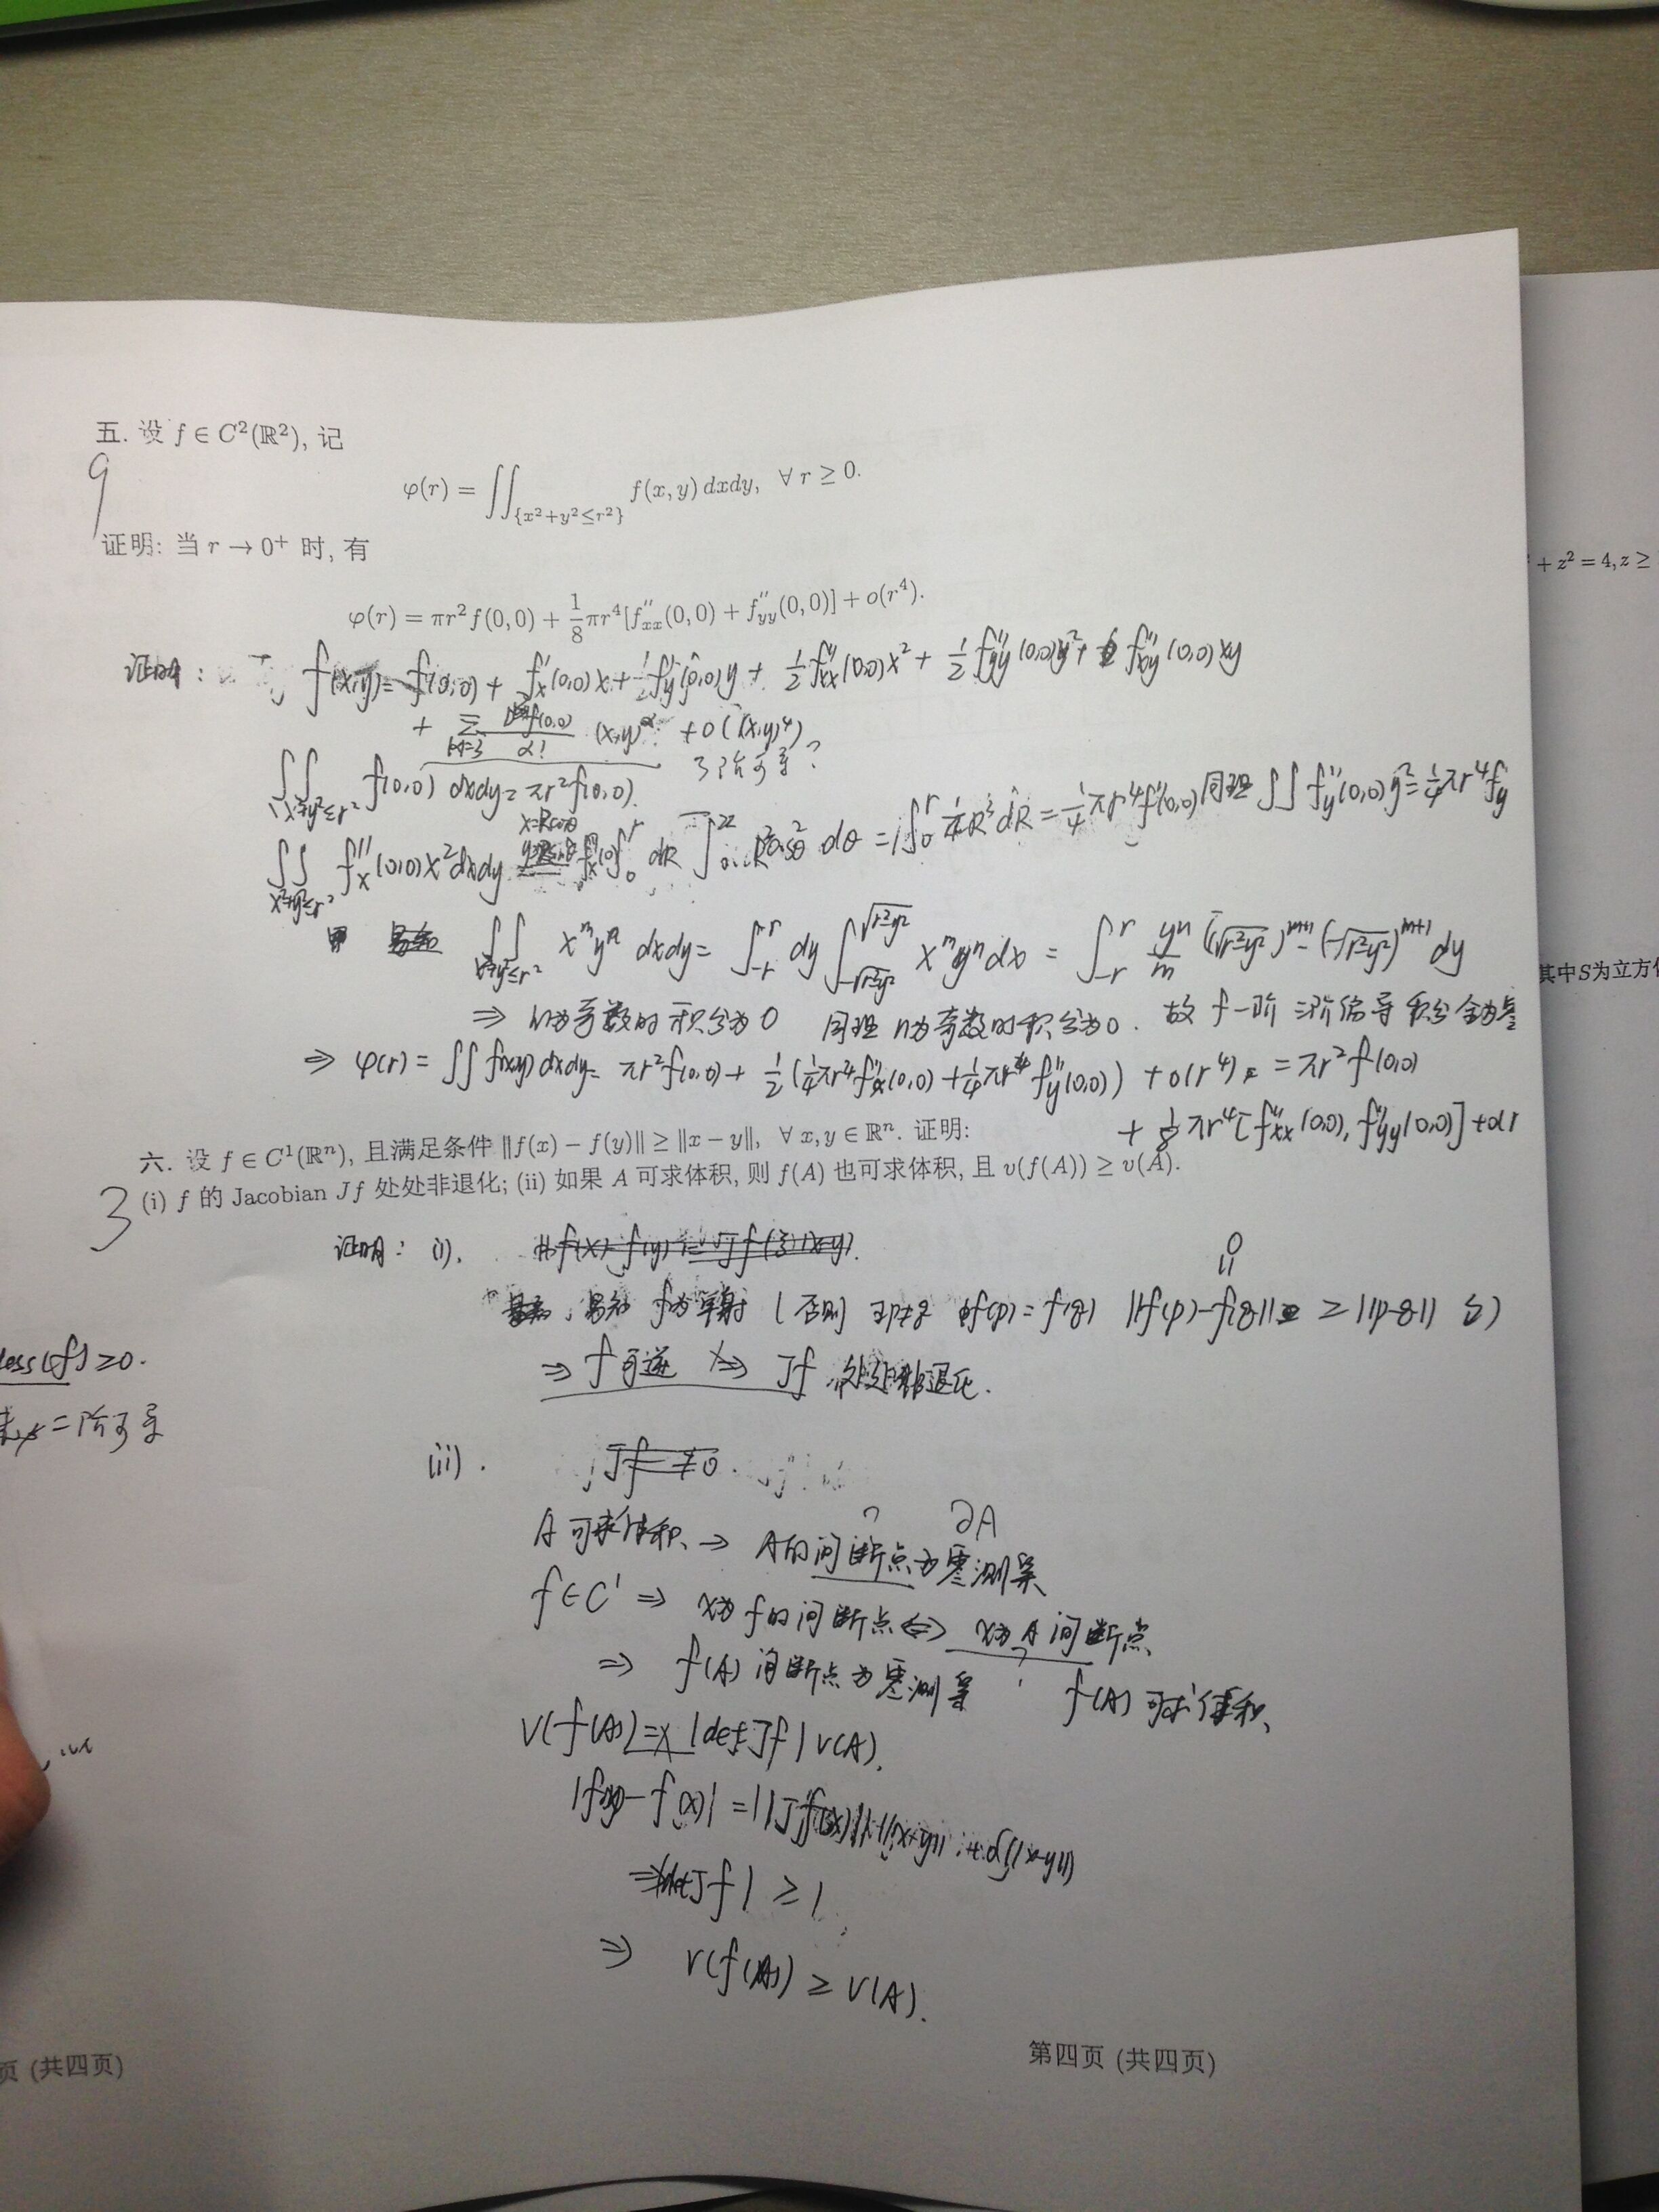 五. 设 f ∈ C²(ℝ²), 记
9
φ(r) = ∬_{x²+y²≤r²} f(x, y) dxdy, ∀ r ≥ 0.
证明: 当 r → 0⁺ 时, 有
φ(r) = πr²f(0,0) + 1/8 πr⁴[f''xx(0,0) + f''yy(0,0)] + o(r⁴).
证明: f(x,y) = f(0,0) + f'x(0,0)x + f'y(0,0)y + 1/2 f''xx(0,0)x² + 1/2 f''yy(0,0)y² + f''xy(0,0)xy
+ Σ_{|α|=3} f(0,0)/α! (x,y)^α + o((x,y)⁴)
3阶可导?
∬_{x²+y²≤r²} f(0,0) dxdy = πr²f(0,0).
∬_{x²+y²≤r²} f''x(0,0)x²dxdy x=Rcosθ ∫₀^r dR cos²θ dθ = ∫₀^r R³dR = 1/4 πr⁴f''(0,0) 同理 ∬ f''y(0,0)y² = 1/4 πr⁴f''y
∬_{x²+y²≤r²} x^m y^n dxdy = ∫_{-r}^{r} dy ∫_{-√(r²-y²)}^{√(r²-y²)} x^m y^n dx = ∫_{-r}^{r} y^n/m (√(r²-y²))^{m+1} - (-√(r²-y²))^{m+1} dy
⇒ m为奇数时积分为0 同理 n为奇数时积分为0. 故 f 一阶 三阶偏导积分全为零
⇒ φ(r) = ∬ f(x,y) dxdy = πr²f(0,0) + 1/2 (1/4 πr⁴f''x(0,0) + 1/4 πr⁴ f''y(0,0)) + o(r⁴) = πr²f(0,0)
+ 1/8 πr⁴[f''xx(0,0), f''yy(0,0)] + o(r
六. 设 f ∈ C¹(ℝⁿ), 且满足条件 ‖f(x) − f(y)‖ ≥ ‖x − y‖, ∀ x, y ∈ ℝⁿ. 证明:
3
(i) f 的 Jacobian Jf 处处非退化; (ii) 如果 A 可求体积, 则 f(A) 也可求体积, 且 v(f(A)) ≥ v(A).
证明: (i).
易知 f为单射 (否则 ∃p≠q f(p)=f(q) ||f(p)-f(q)|| ≥ ||p-q||
0
⇒ f可逆 ⇒ Jf 处处非退化.
(ii). Jf ≠ 0.
∂A
A可求体积 → A的间断点为零测集
f∈C¹ ⇒ x为f的间断点 ⇔ x为A间断点
⇒ f(A)间断点为零测集 f(A)可求体积
V(f(A)) = |det Jf| V(A).
|f(y)-f(x)| = ||Jf(x)|| ||x-y|| + o(||x-y||)
⇒ |det Jf| ≥ 1
⇒ V(f(A)) ≥ V(A).
第四页 (共四页)
≥0.
二阶可导
页 (共四页)
+ z² = 4, z ≥
其中S为立方